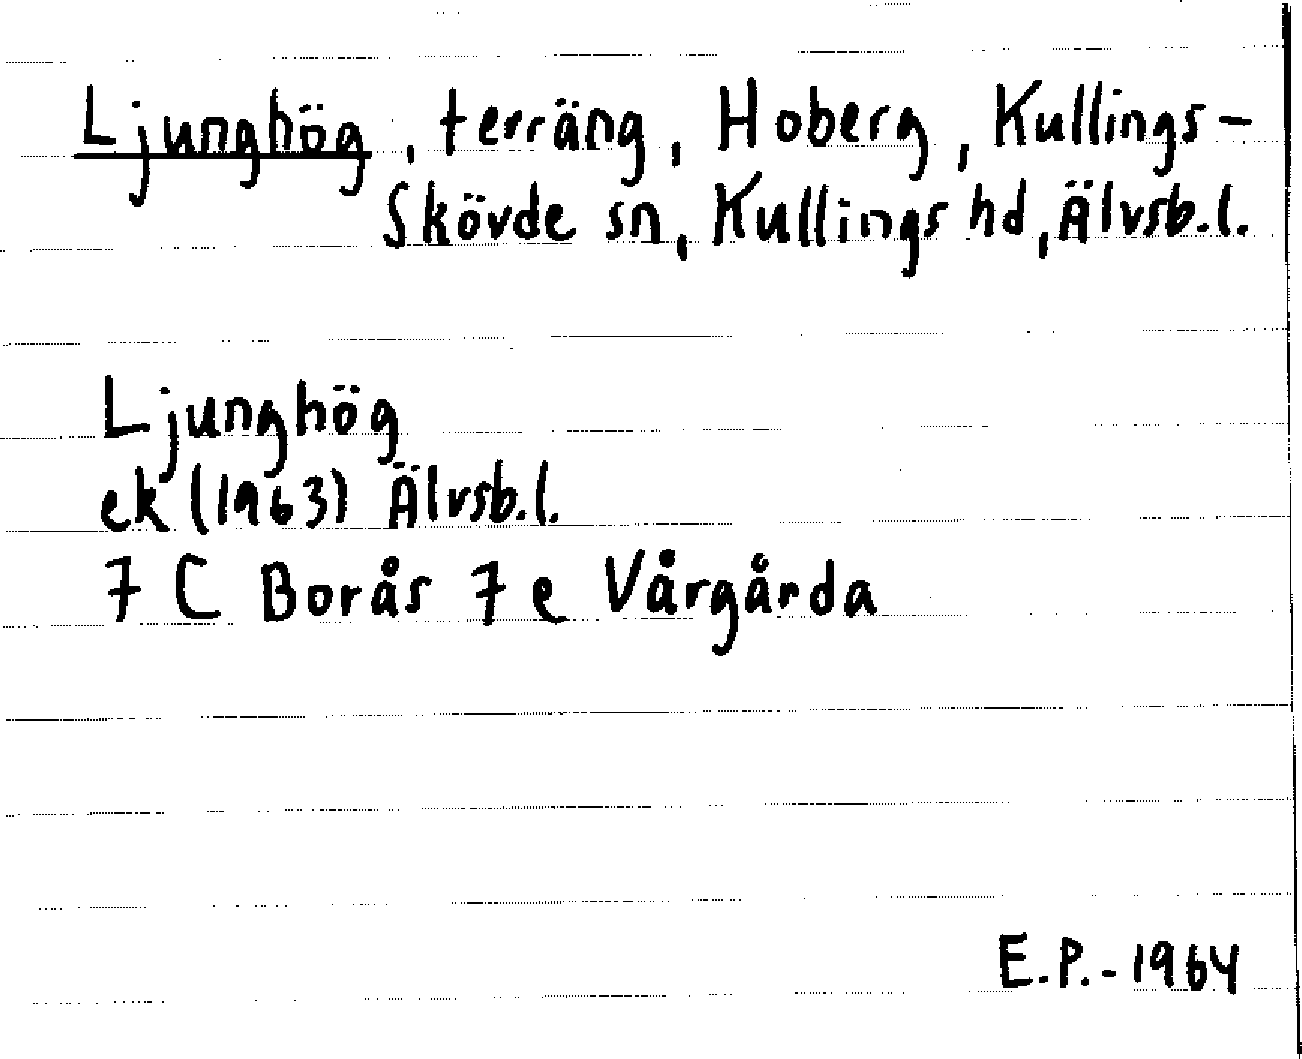 Ljunghög, terräng, Hoberg, Kullings-
Skövde sn, Kullings hd, Älvsb.l.
Ljunghög
ek (1963) Älvsb.l.
7 C Borås 7 e Vårgårda
E.P.-1964